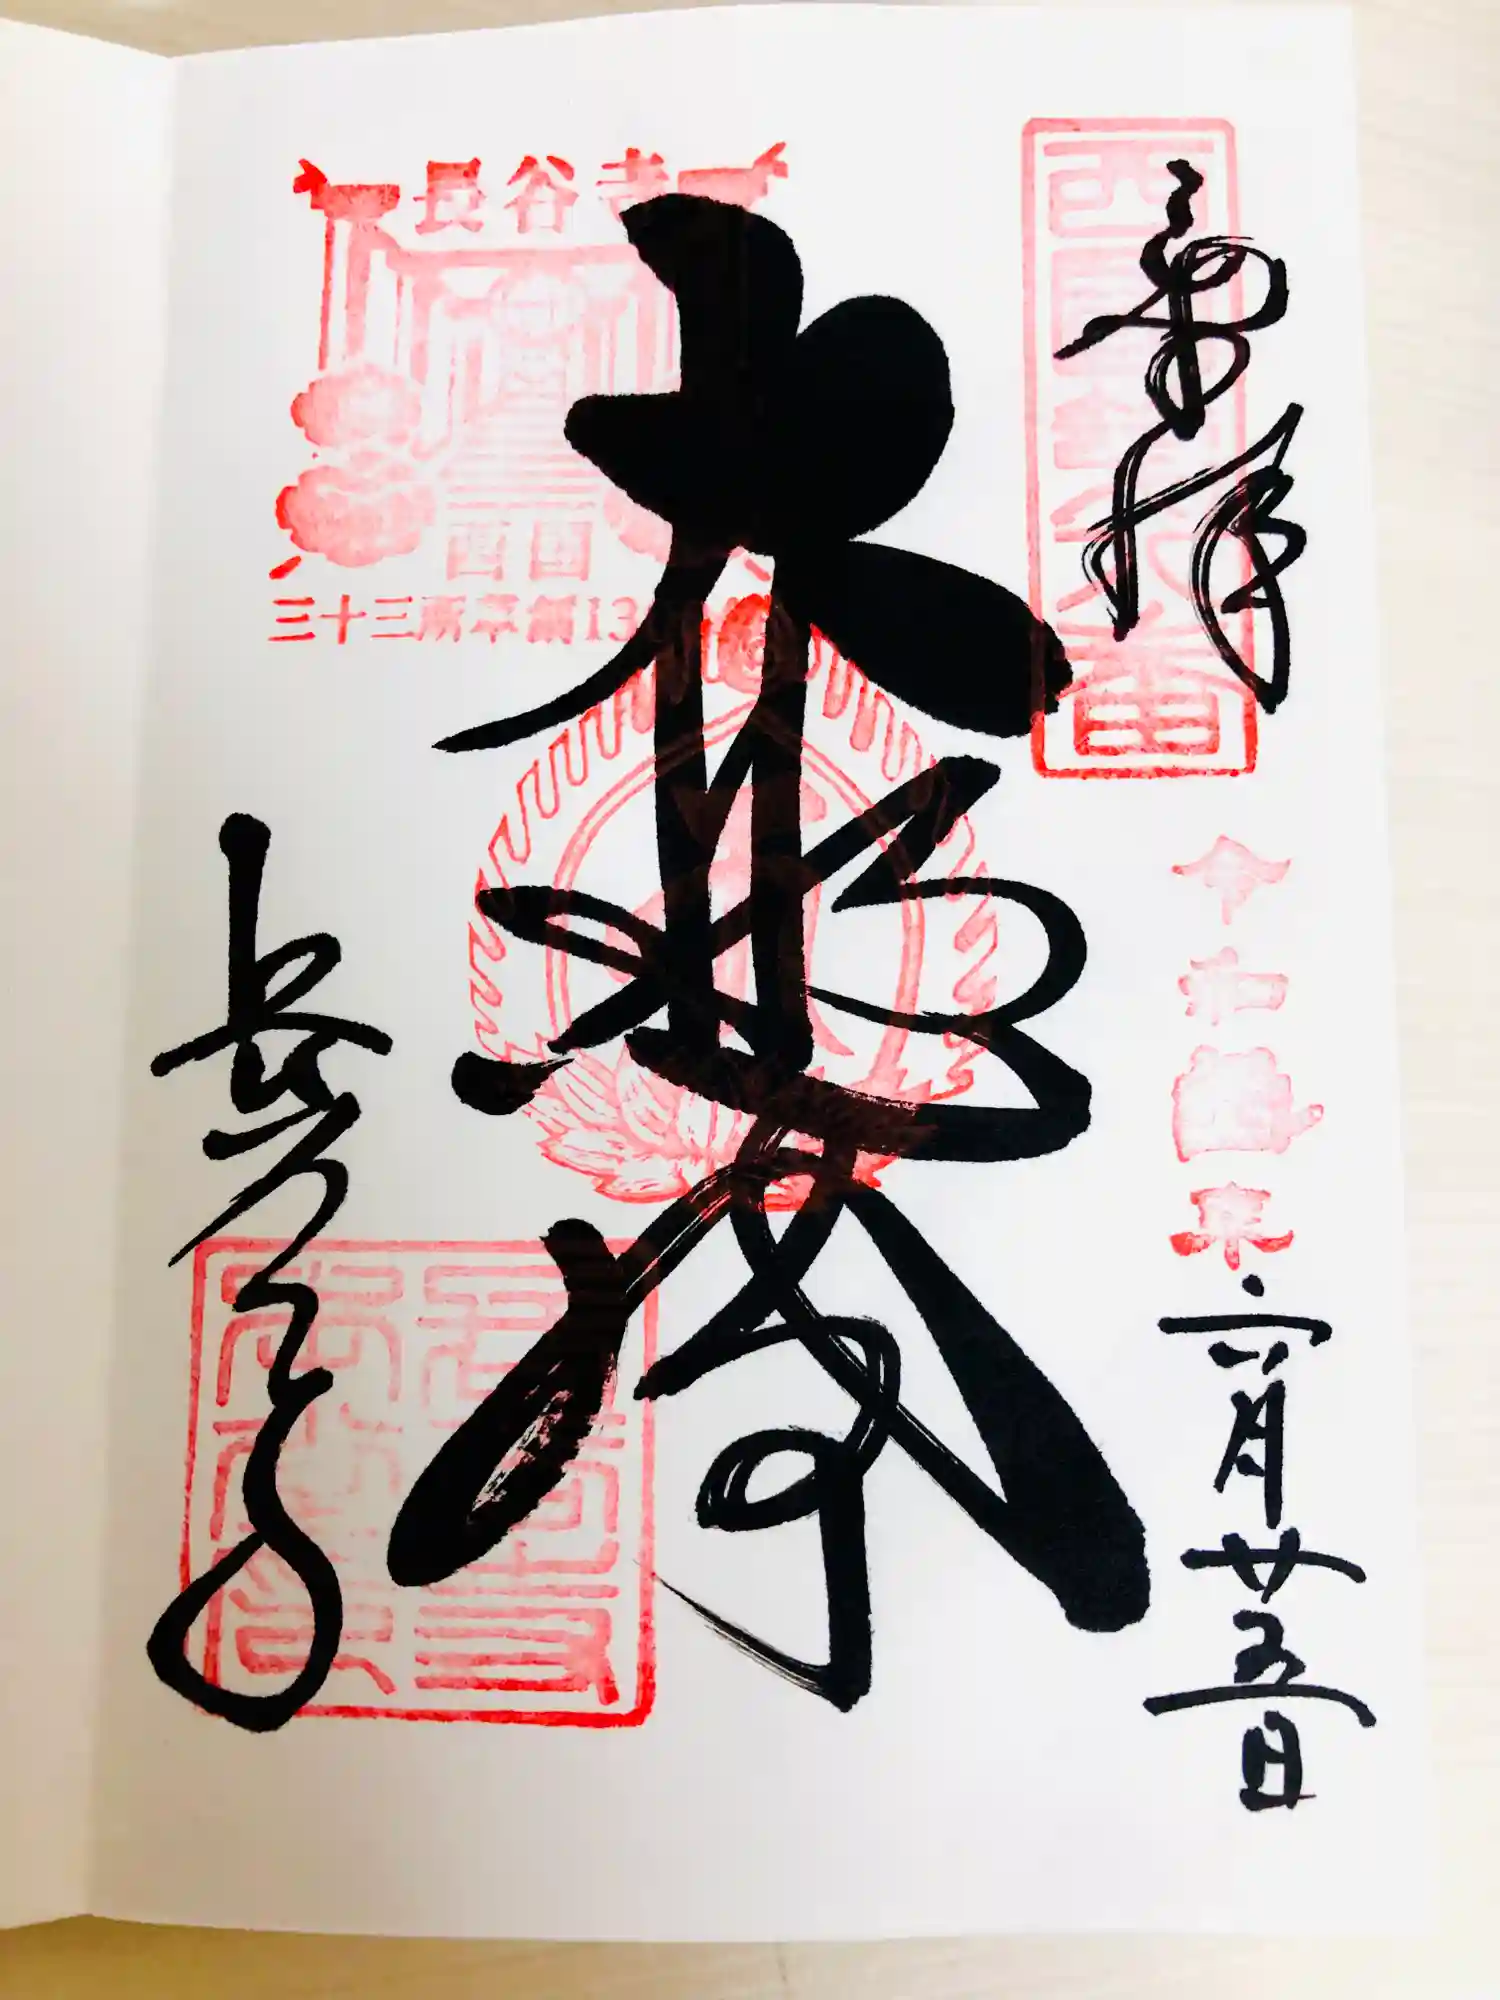 奉拝
西国第八番
令和
六月廿五日
大悲閣
長谷寺
西国
三十三所草創13
長谷寺